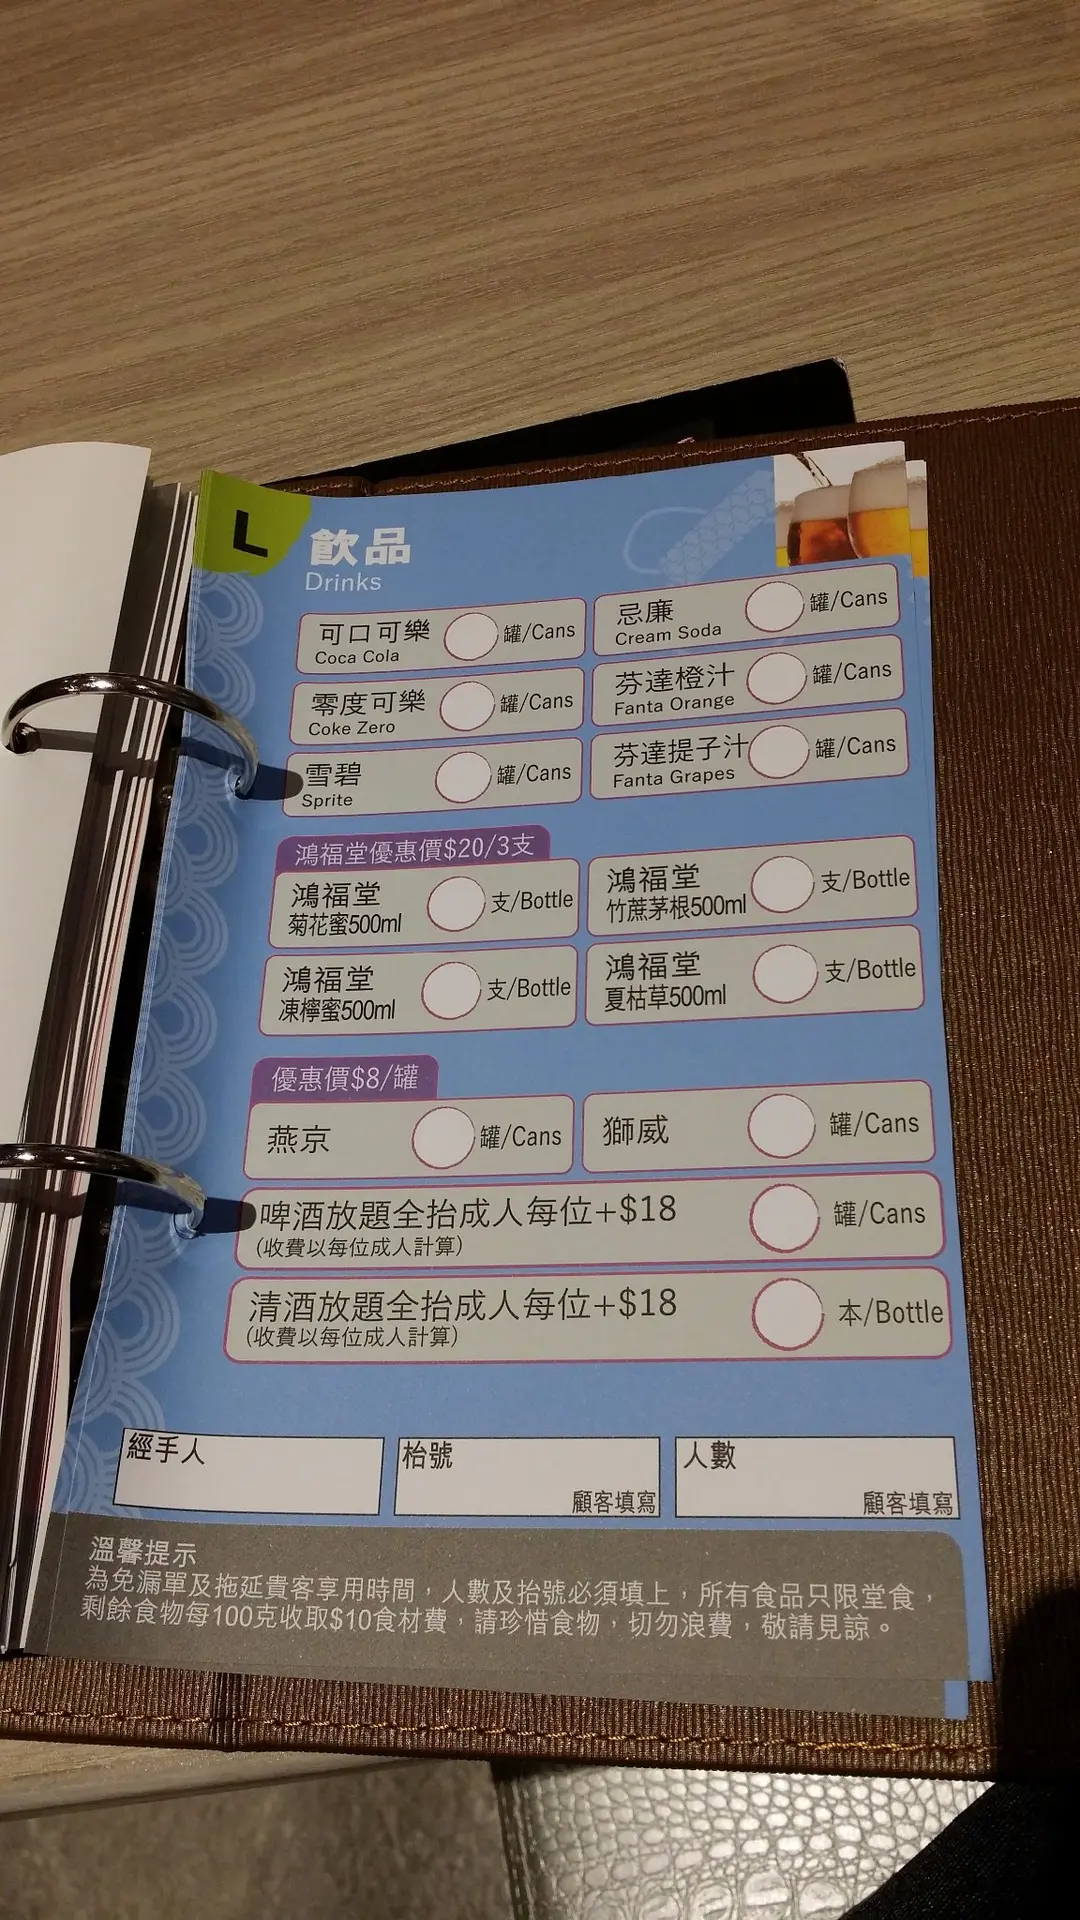 L
飲品
Drinks
可口可樂 罐/Cans
Coca Cola
忌廉 罐/Cans
Cream Soda
零度可樂 罐/Cans
Coke Zero
芬達橙汁 罐/Cans
Fanta Orange
雪碧 罐/Cans
Sprite
芬達提子汁 罐/Cans
Fanta Grapes
鴻福堂優惠價$20/3支
鴻福堂 支/Bottle
菊花蜜500ml
鴻福堂 支/Bottle
竹蔗茅根500ml
鴻福堂 支/Bottle
凍檸蜜500ml
鴻福堂 支/Bottle
夏枯草500ml
優惠價$8/罐
燕京 罐/Cans
獅威 罐/Cans
啤酒放題全抬成人每位+$18 罐/Cans
(收費以每位成人計算)
清酒放題全抬成人每位+$18 本/Bottle
(收費以每位成人計算)
經手人
枱號
顧客填寫
人數
顧客填寫
溫馨提示
為免漏單及拖延貴客享用時間，人數及抬號必須填上，所有食品只限堂食，
剩餘食物每100克收取$10食材費，請珍惜食物，切勿浪費，敬請見諒。